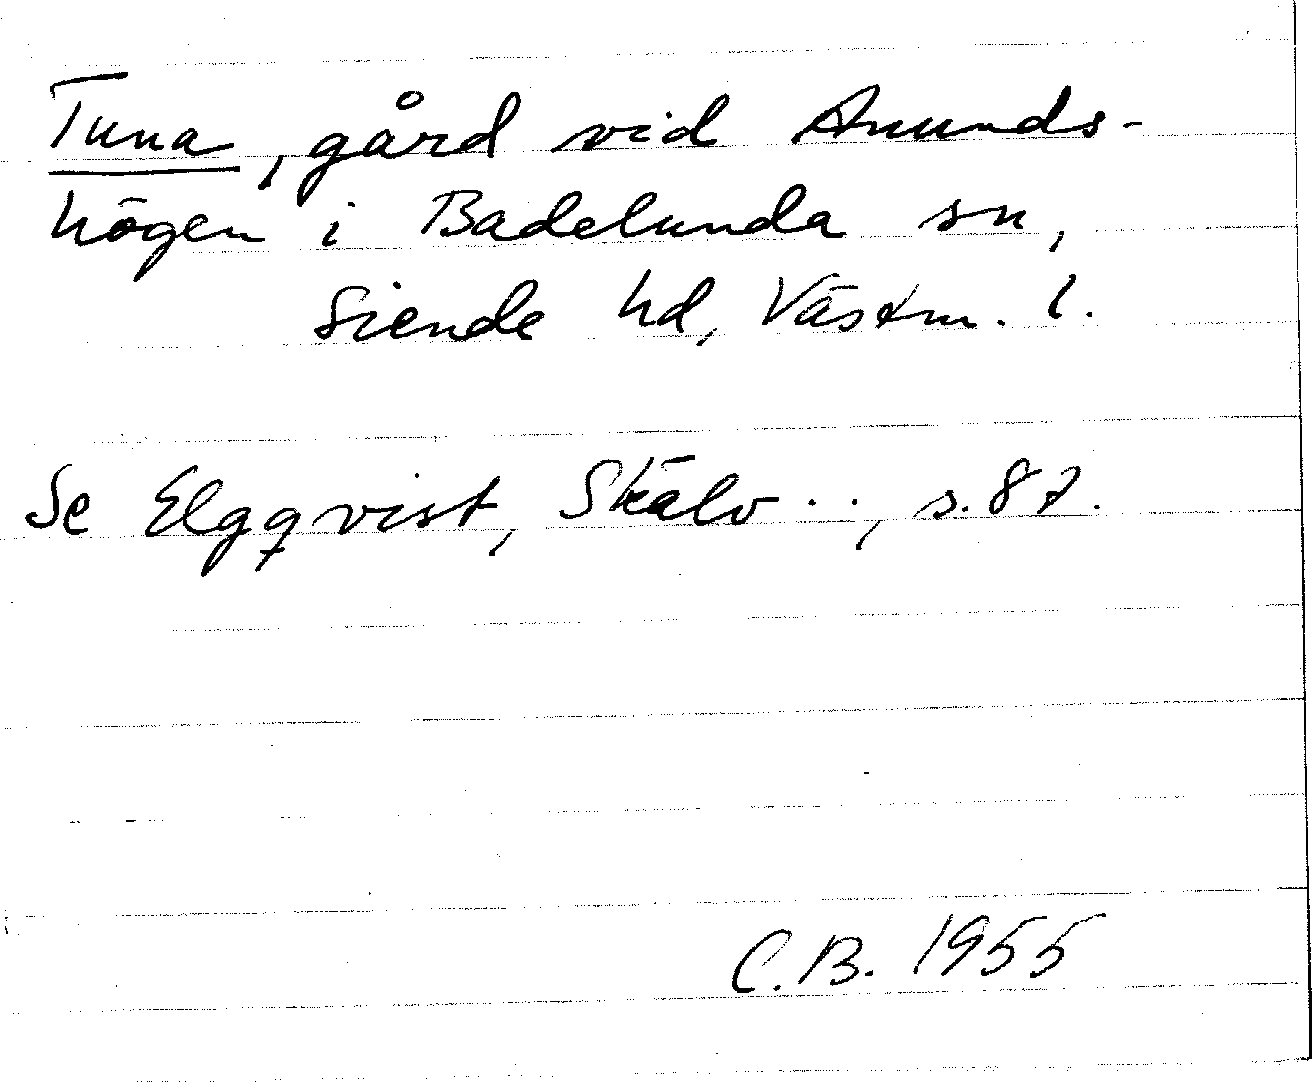 Tuna, gård vid Anunds-
högen i Badelunda sn,
Siende hd, Västm. l.
Se Elgqvist, Skälv . ., s. 87.
C.B. 1955